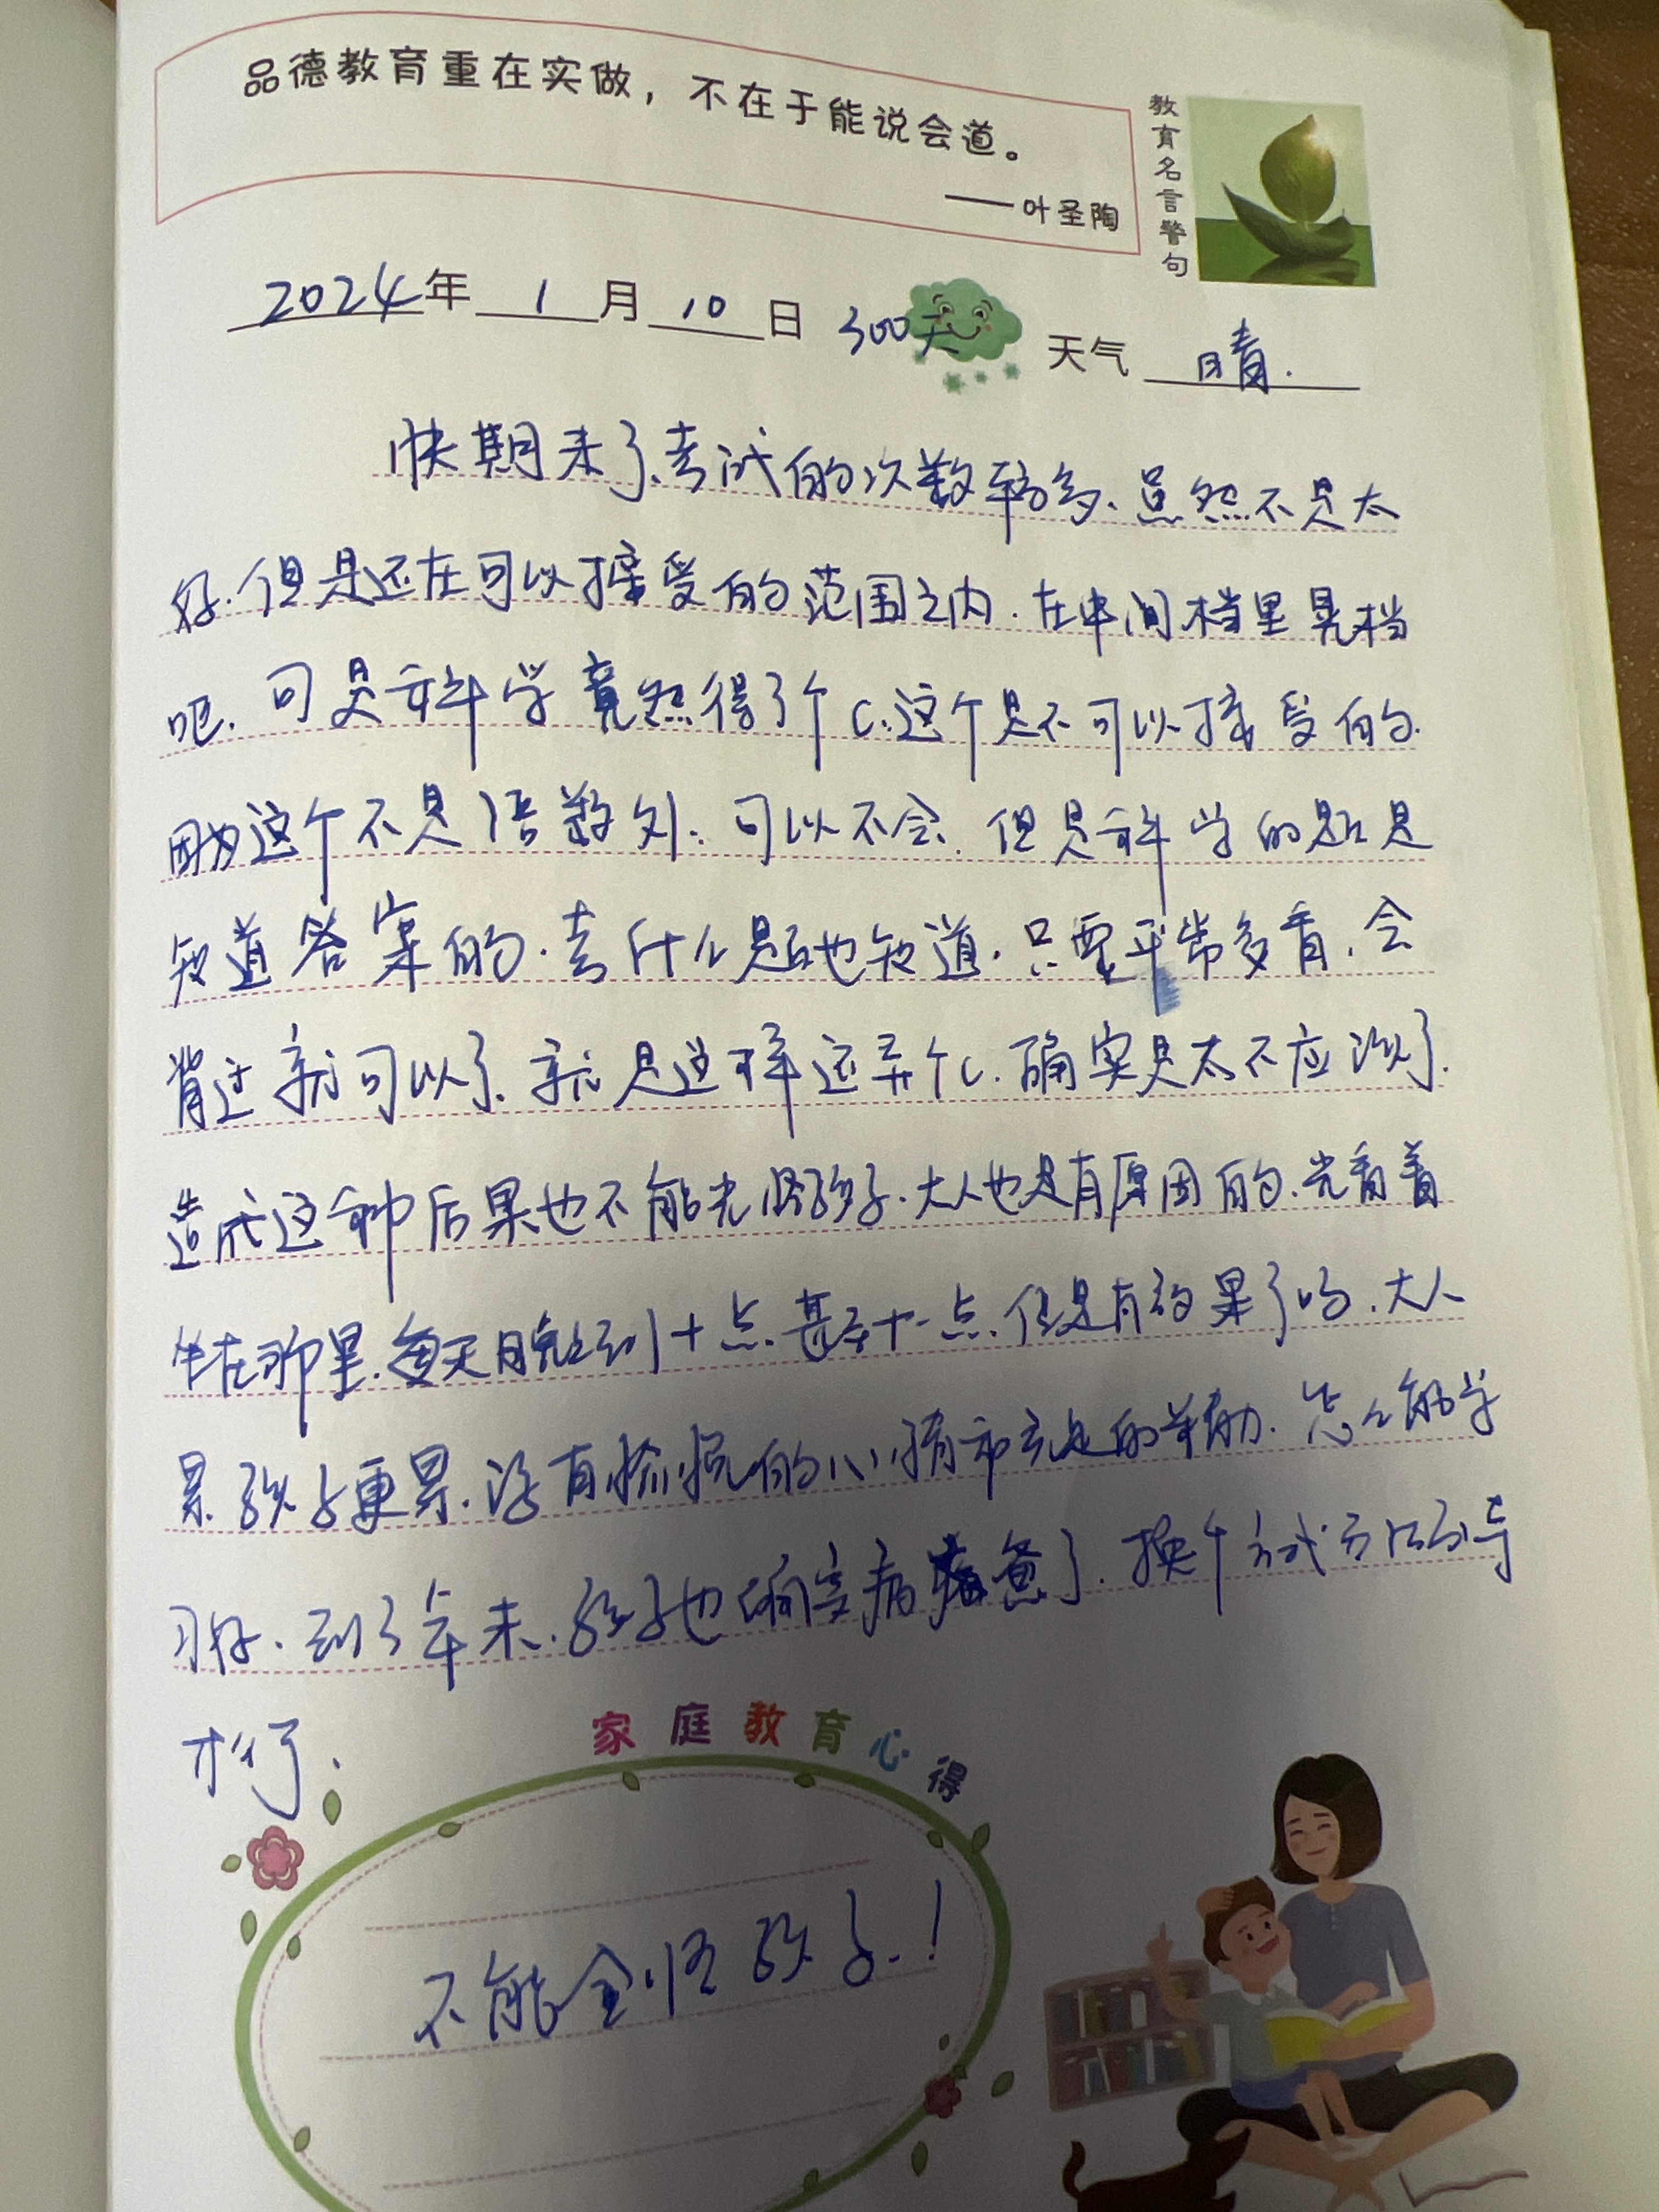 品德教育重在实做，不在于能说会道。
——叶圣陶
教育名言警句
2024年 1 月 10 日 300天 天气 晴.
快期末了、考试的次数较多、虽然不是太
好.但是还在可以接受的范围之内.在中间档里晃档
吧.可是科学竟然得了个C.这个是不可以接受的.
因为这个不是语数外.可以不会.但是科学的题是
知道答案的.考什么题也知道.只要平常多看.会
背过就可以了.就是这样还弄个C.确实是太不应该了.
造成这种后果也不能光怪孩子.大人也是有原因的.光看着
坐在那里.每天晚上到十点.甚至十一点.但是有效果了吗.大人
累.孩子更累.没有愉悦的心情和充足的精力.怎么能学
习好.到了年末.孩子也倦了.换个方式方法引导
才行了.
家庭教育心得
不能全怪孩子.!